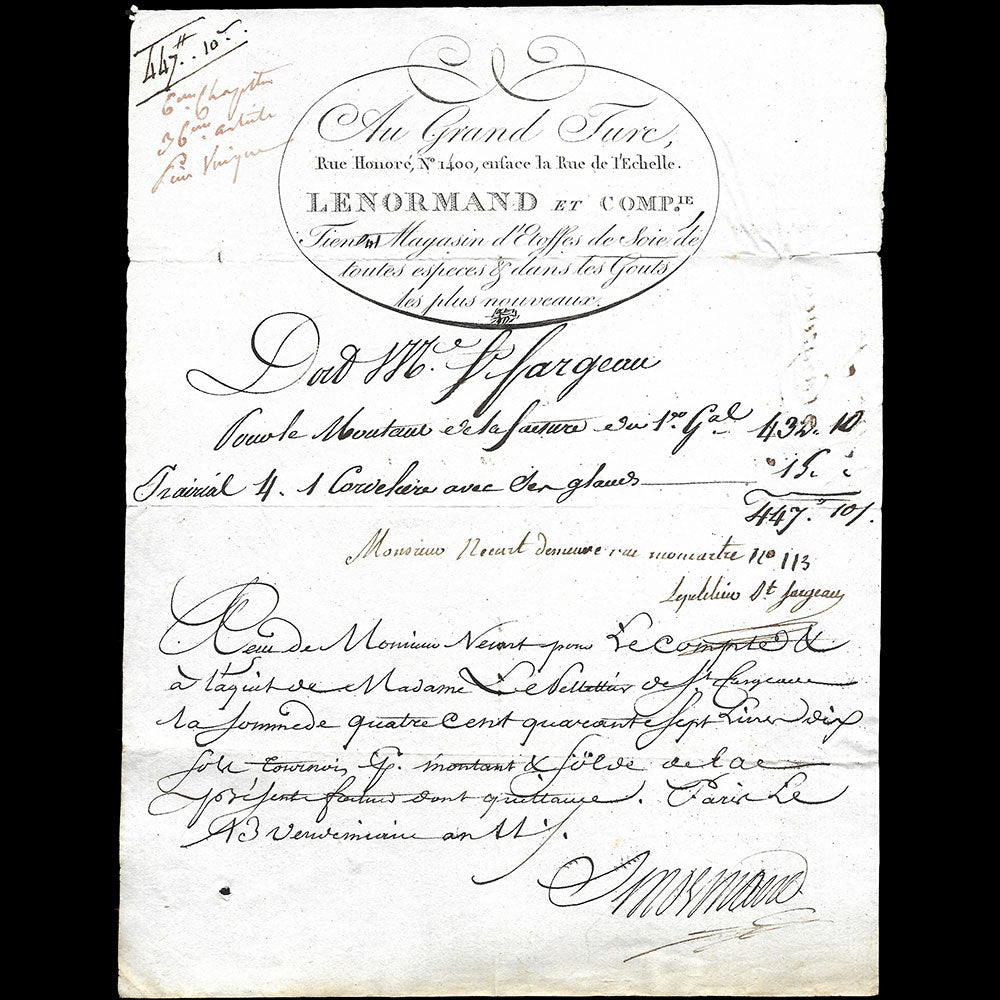 447# 10s.
6eme Chapitre
36eme article
Piece Unique
Au Grand Turc,
Rue Honoré, No 1400, enface la Rue de l'Echelle.
LENORMAND ET COMP.IE
Tient Magasin d'Etoffes de Soie de
toutes especes & dans les Gouts
les plus nouveaux.
Doit Me St fargeau
Pour le Montant de la facture du 1er Gal 432. 10
Prairial 4. 1 Cordeliere avec Ses glands 15.
447. 10s.
Monsieur Recurt demeure rue momartre no 113
Lepeletier St fargeau
Reçu de Monsieur pour Le Compte &
à l'aquit de Madame Le Pelletier de St fargeau
la somme de quatre cent quarante sept Livres dix
sols tournois P. montant & sölde de la
présente facture dont quittance. Paris Le
13 Vendemiaire an
Lenormand